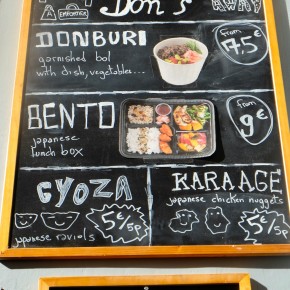 À EMPORTER
Don's
AWAY
DONBURI
garnished bol
with dish, vegetables...
from
7.5€
BENTO
japanese
lunch box
from
9€
GYOZA
japanese raviolis
5€/5p
KARAAGE
japanese chicken nuggets
5€/5p